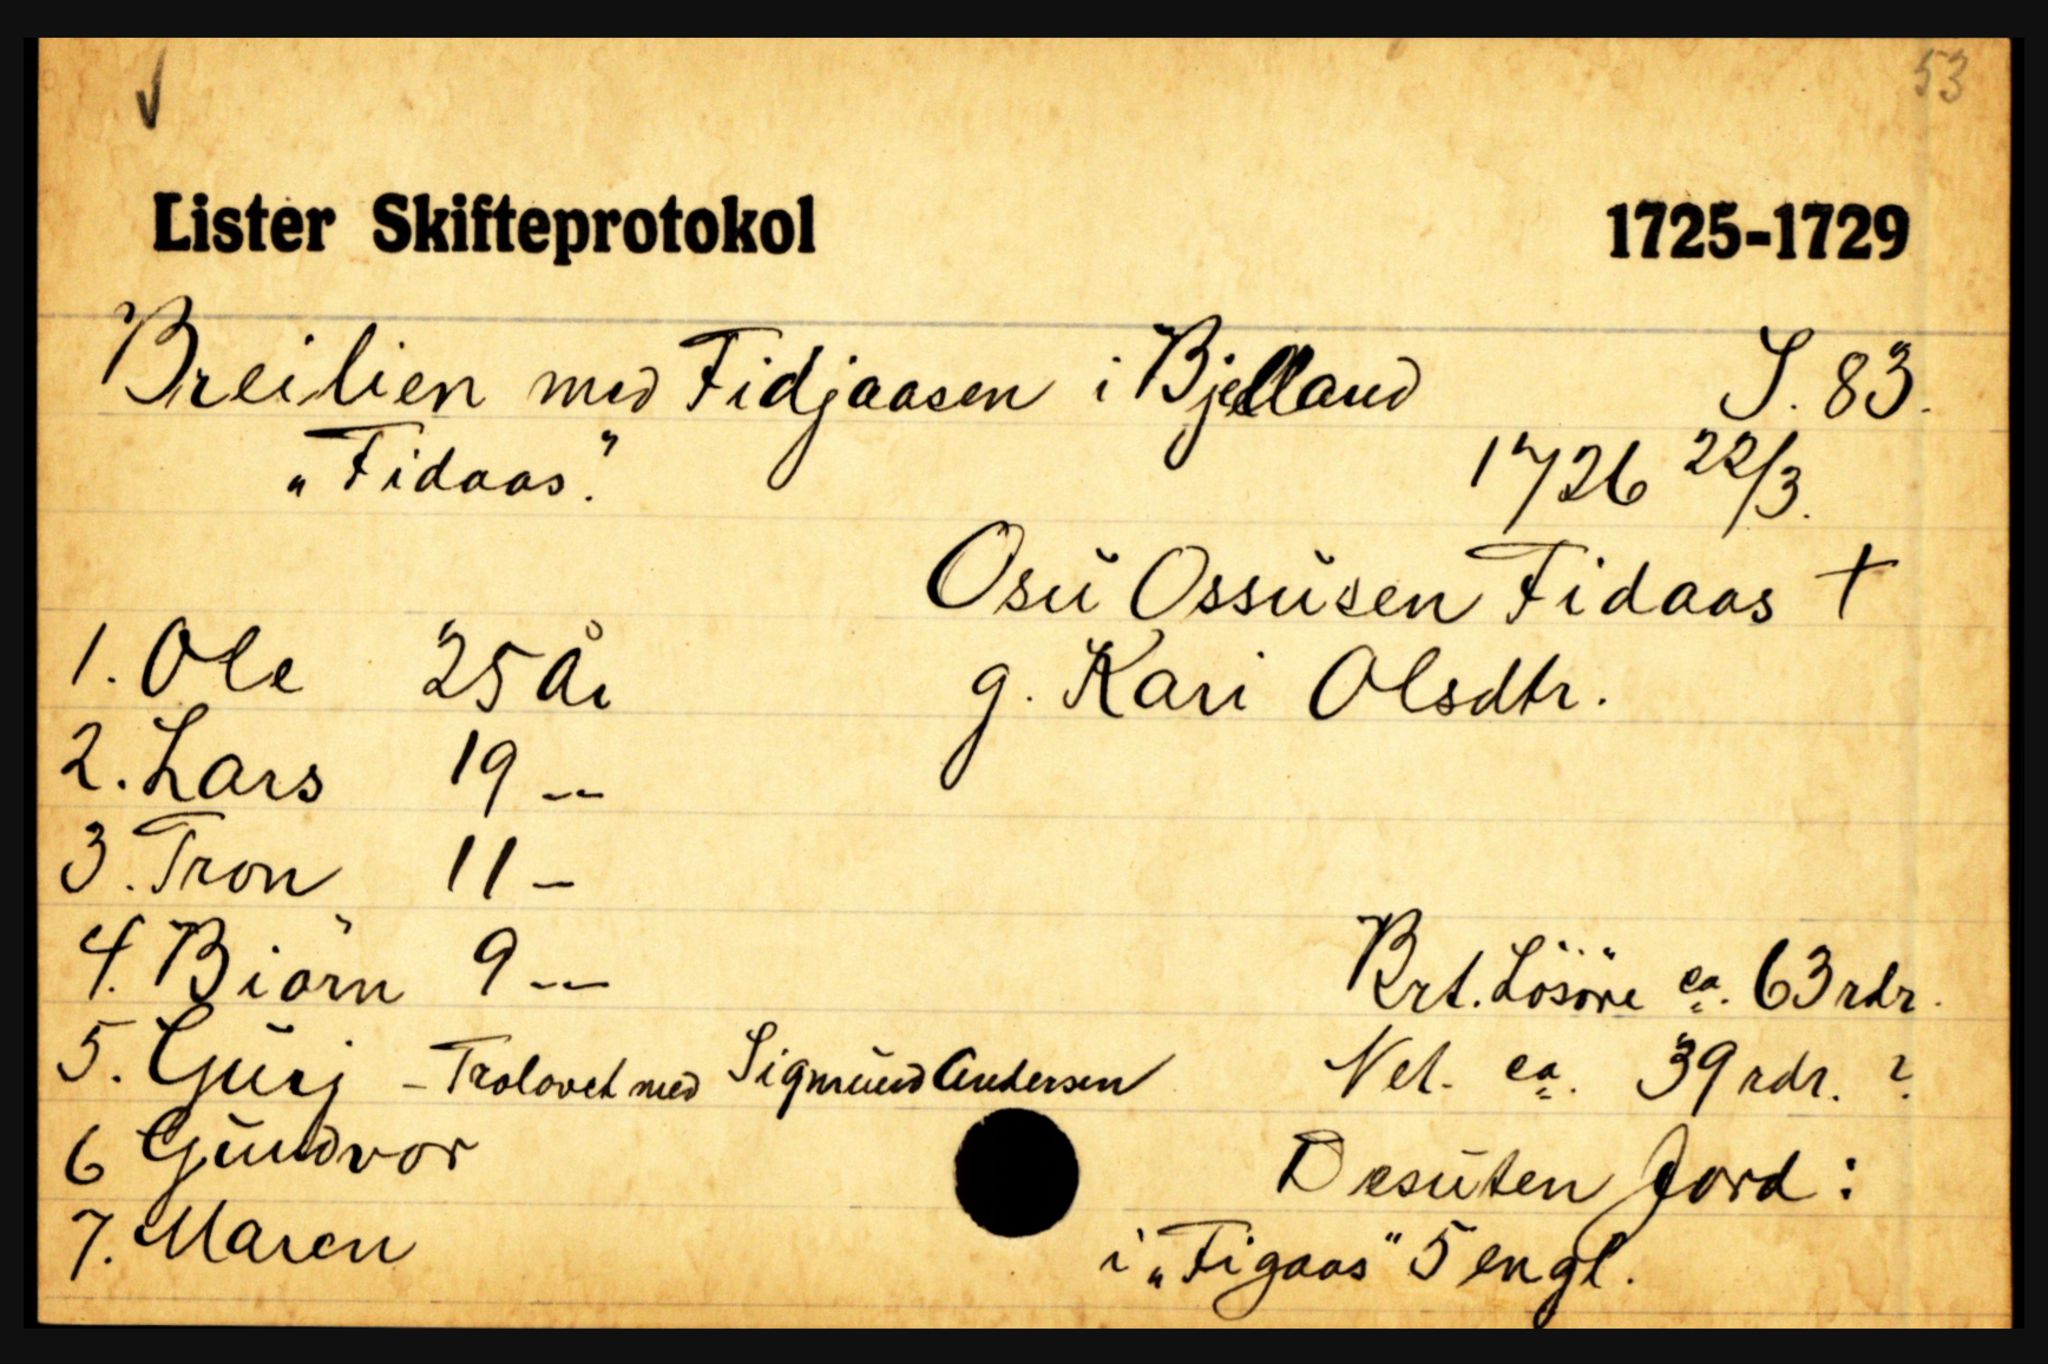 53
Lister Skifteprotokol 1725-1729
Breilien med Fidjaasen i Bjelland S. 83.
"Fidaas".
1726 22/3.
Osu Ossusen Fidaas †
g. Kari Olsdtr.
1. Ole 25 År
2. Lars 19 --
3. Tron 11 -
4. Biörn 9 --
5. Gurj - Trolovet med Sigmund Andersen
6 Gundvor
7. Maren
Brt. Lösöre ca. 63 rdr.
Net. ca. 39 rdr. ?
Desuten Jord:
i "Figaas" 5 engl.